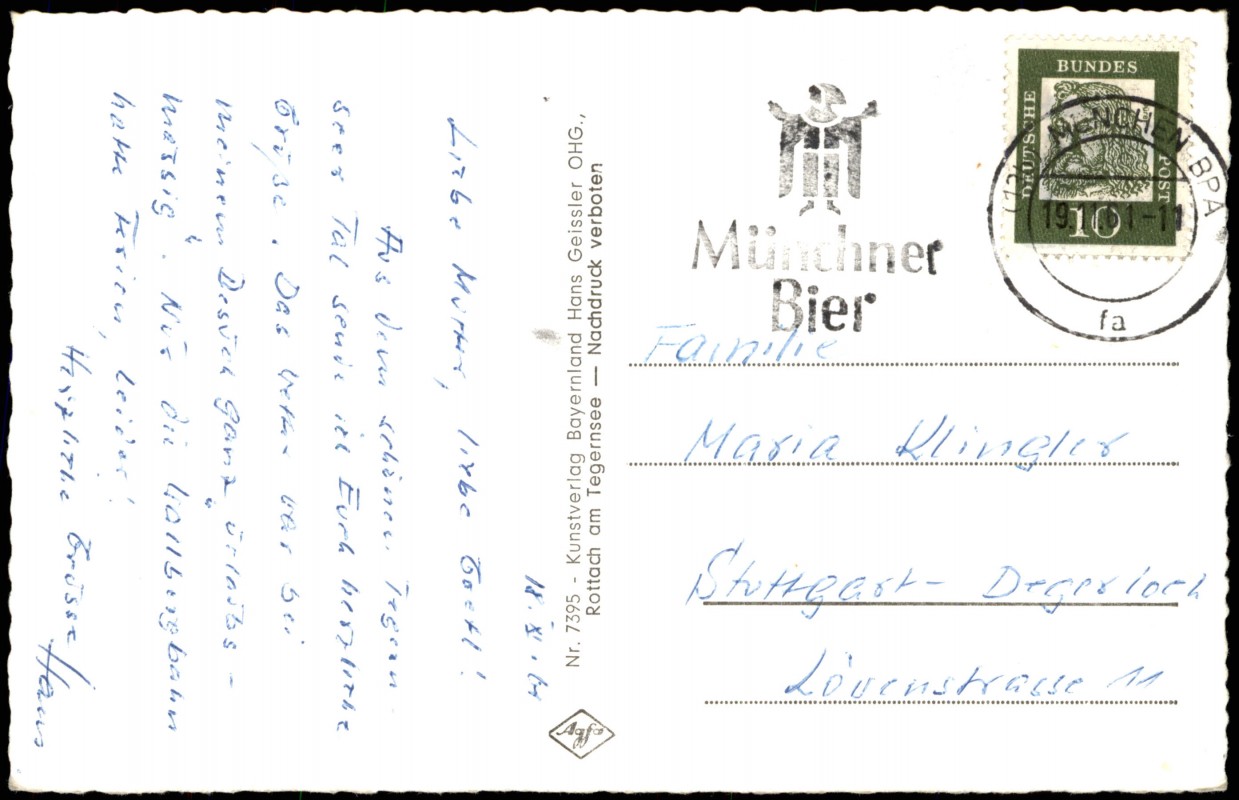 18. XI. 61
Liebe Mutter, liebe Gretl!
Aus dem schönen Tegern-
seer Tal sende ich Euch herzliche
Grüße. Das Wetter war bei
meinem Besuch ganz „urlaubs-
mässig“. Nur die Wallbergbahn
hatte Ferien, leider!
Herzliche Grüsse
Hans
Nr. 7395 - Kunstverlag Bayernland Hans Geissler OHG.,
Rottach am Tegernsee — Nachdruck verboten
Agfa
Münchner
Bier
DEUTSCHE BUNDES POST
10
MÜNCHEN BPA
19.11.61-11
fa
Familie
Maria Klingler
Stuttgart- Degerloch
Löwenstrasse 11